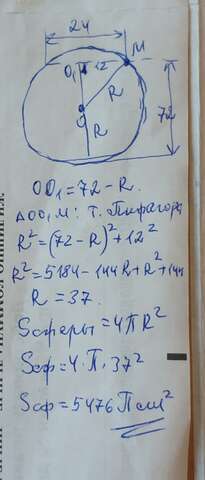 24
M
O₁ 12
R
O
R
72
OO₁ = 72 - R.
△OO₁M: т. Пифагора
R² = (72 - R)² + 12²
R² = 5184 - 144R + R² + 144
R = 37.
Sсферы = 4πR²
Sсф = 4·π·37²
Sсф = 5476 π см²